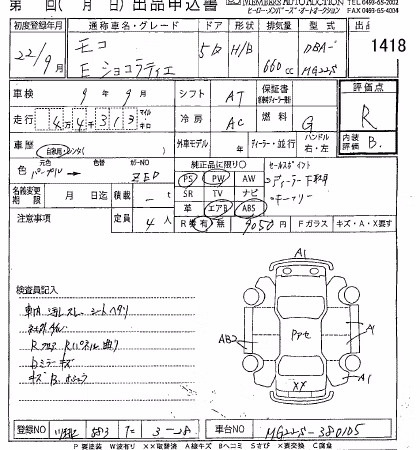 第 回( 月 日)出品申込書 MEMBERS AUTO AUCTION
ヒーロー・メンバーズ・オートオークション FAX 0493-65-4004
初度登録年月 通称車名・グレード ドア 形状 排気量 型式 出品
22/9月 モコ 5D H/B 660cc DBA- 1418
E ショコラティエ MG22S
車検 9年 9月 シフト AT 保証書 評価点
走行 4 4 3 1 3 マイル キロ 冷房 AC 燃料 G R
車歴 自家用・レンタ( ) 外車モデル 年 ディーラー・並行 ハンドル 右・左 内装評価 B
元色 色替 カラーNO 純正品に限り○ セールスポイント
色 パープル → ZED PS PW AW ・ディーラー下取車
名義変更期限 月 日迄 積載 t SR TV ナビ ・キーフリー
注意事項 定員 4人 革 エアB ABS
R券 有 無 9050円 Fガラス キズ・A・X要す
検査員記入
車内汚レ スレ シートヘタリ
Rフロア Rパネル曲り
ドアミラーキズ
A1
AB2
A1
A1
XX
登録NO 583 た 3-28 車台NO MG22S-380105
P要塗装 W波有り XX取替済 A線キズ Bヘコミ Sさび X要交換 C腐食